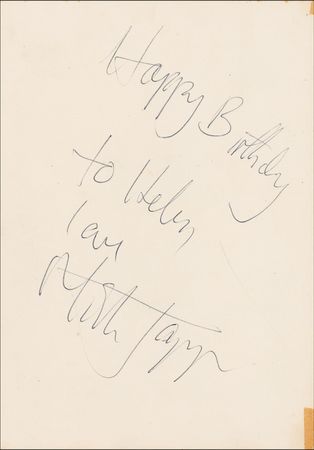 Happy Birthday
to Helen,
love
Mick Jagger